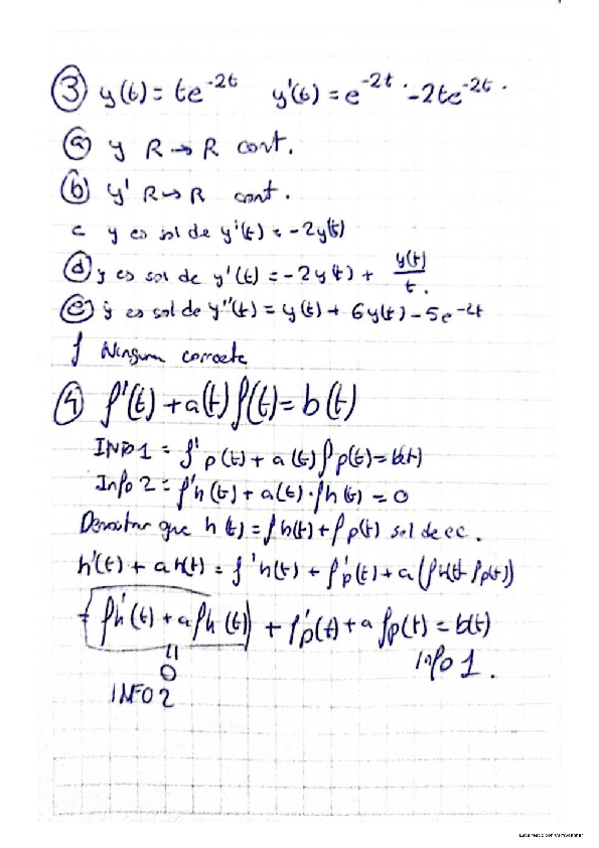 ③ y(t) = te^{-2t}   y'(t) = e^{-2t} - 2te^{-2t}.
ⓐ y R → R cont.
ⓑ y' R → R cont.
c y es sol de y'(t) = -2y(t)
ⓓ y es sol de y'(t) = -2y(t) + y(t)/t.
ⓔ y es sol de y''(t) = y(t) + 6y(t) - 5e^{-2t}
f Ninguna correcta
④ f'(t) + a(t) f(t) = b(t)
INFO 1 = f'p(t) + a(t) fp(t) = b(t)
Info 2 = f'h(t) + a(t) · fh(t) = 0
Demostrar que h(t) = fh(t) + fp(t) sol de ec.
h'(t) + ah(t) = f'h(t) + f'p(t) + a(fh(t) fp(t))
= fh'(t) + afh(t) + fp'(t) + a fp(t) = b(t)
Info 1.
0
INFO 2